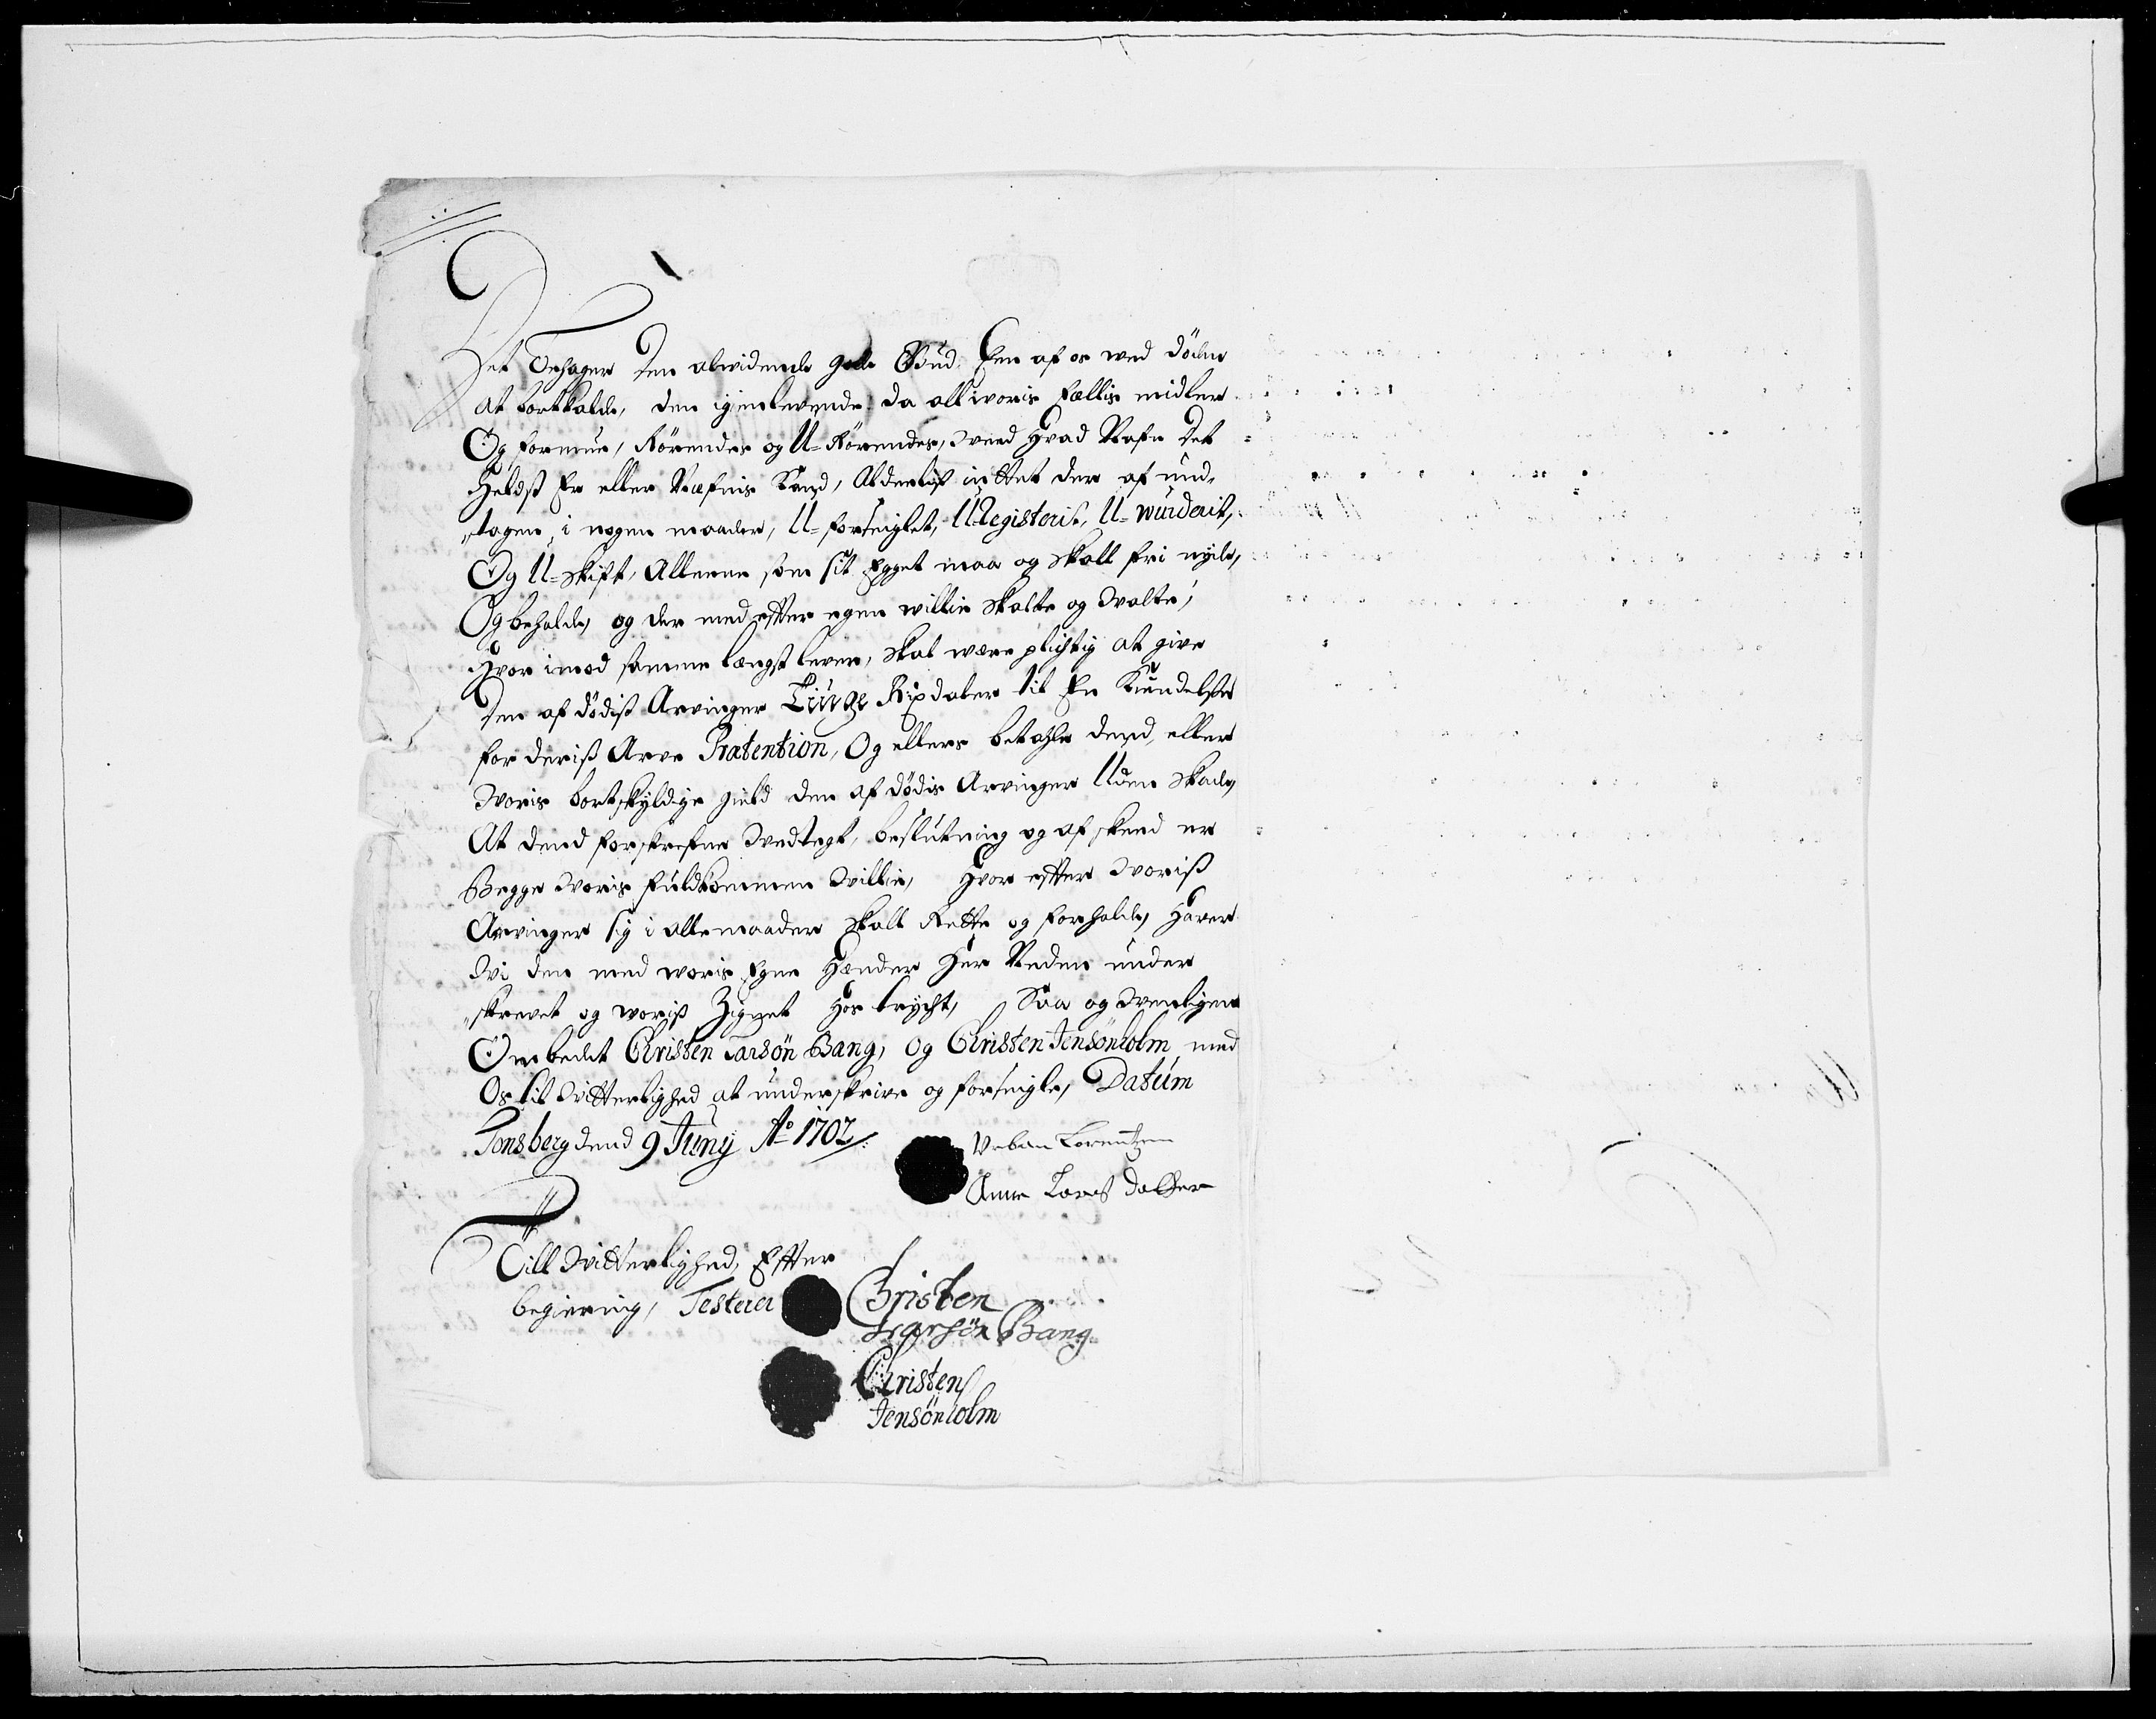 Det Behager den alvidende gode Gud Een af os ved døden
at bortkalde, den igienlevende da all woris fællis midler
Og formue, Rørendes og U-Rørendes, Ved hvad Nafn det
Heldst Er eller Næfnis kand, Aldeelis inttet der af und-
tagen i nogen maader, U-forseiglet, U-Registerit, U-wurderit,
Og U-skift, Alleene som sit Egget maa og skall fri nyde,
Og beholde, og der med effter egen willie skalte og Valte,
Hvor imod samme længst lever, skal være plichtig at give
den af dødis Arvinger Tiuge Rixdaler til En kiendelse
for deris Arve Prætention, Og ellers betahle dend, eller
Voris bortskyldige gield den af dødis Arvinger Uden skade,
At dend forskrefne Vedtegt, beslutning og afskeed er
Begge Voris fuldkommen Villie, Hvor effter Voriss
Arvinger sig i alle maader skall Rette og forholde, Haver
Vi den med woris Egne Hænder Her Neden under
skrevet og woriss Zignet hos trycht, Saa og Venligen
Ombedet Christen Larsøn Bang, Og Christen Jensøn Holm med
Os til Vitterlighed at underskrive og forseigle, Datum
Tonsberg dend 9 Juny Ao 1702
Urban Lorentzen
Anne Lars dotter
Till Vitterlighed, Effter
begiering, Testerer
Christen
Larsøn Bang
Christen
Jensøn Holm